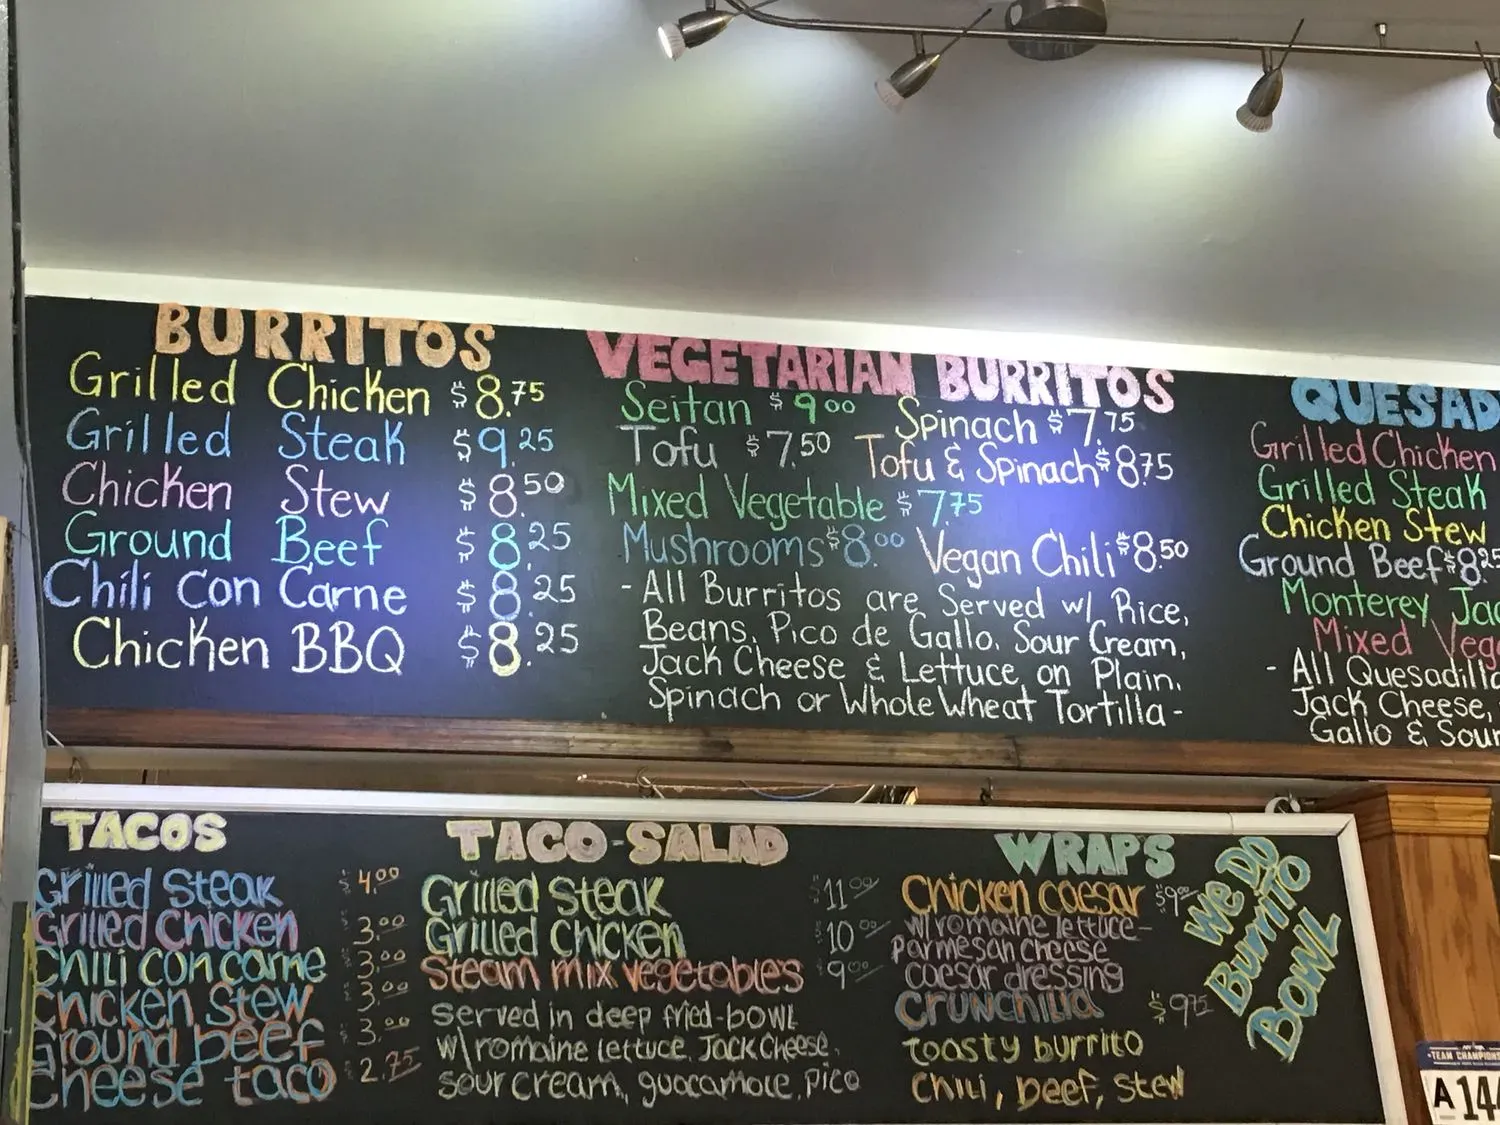 BURRITOS
Grilled Chicken $8.75
Grilled Steak $9.25
Chicken Stew $8.50
Ground Beef $8.25
Chili con Carne $8.25
Chicken BBQ $8.25
VEGETARIAN BURRITOS
Seitan $9.00 Spinach $7.75
Tofu $7.50 Tofu & Spinach $8.75
Mixed Vegetable $7.75
Mushrooms $8.00 Vegan Chili $8.50
- All Burritos are Served w/ Rice,
Beans, Pico de Gallo, Sour Cream,
Jack Cheese & Lettuce on Plain,
Spinach or Whole Wheat Tortilla -
QUESAD
Grilled Chicken
Grilled Steak
Chicken Stew
Ground Beef $8.25
Monterey Jac
Mixed Veg
- All Quesadilla
Jack Cheese,
Gallo & Sour
TACOS
Grilled Steak $4.00
Grilled Chicken $3.00
Chili con carne $3.00
Chicken Stew $3.00
Ground beef $3.00
Cheese taco $2.75
TACO-SALAD
Grilled Steak $11.00
Grilled Chicken $10.00
Steam mix vegetables $9.00
Served in deep fried-bowl
w/romaine lettuce, Jack Cheese,
sour cream, guacamole, pico
WRAPS
Chicken caesar $9.00
w/romaine lettuce-
parmesan cheese
caesar dressing
Crunchilla $9.75
toasty burrito
Chili, beef, stew
We DO
Burrito
BOWL
TEAM CHAMPIONS
A144